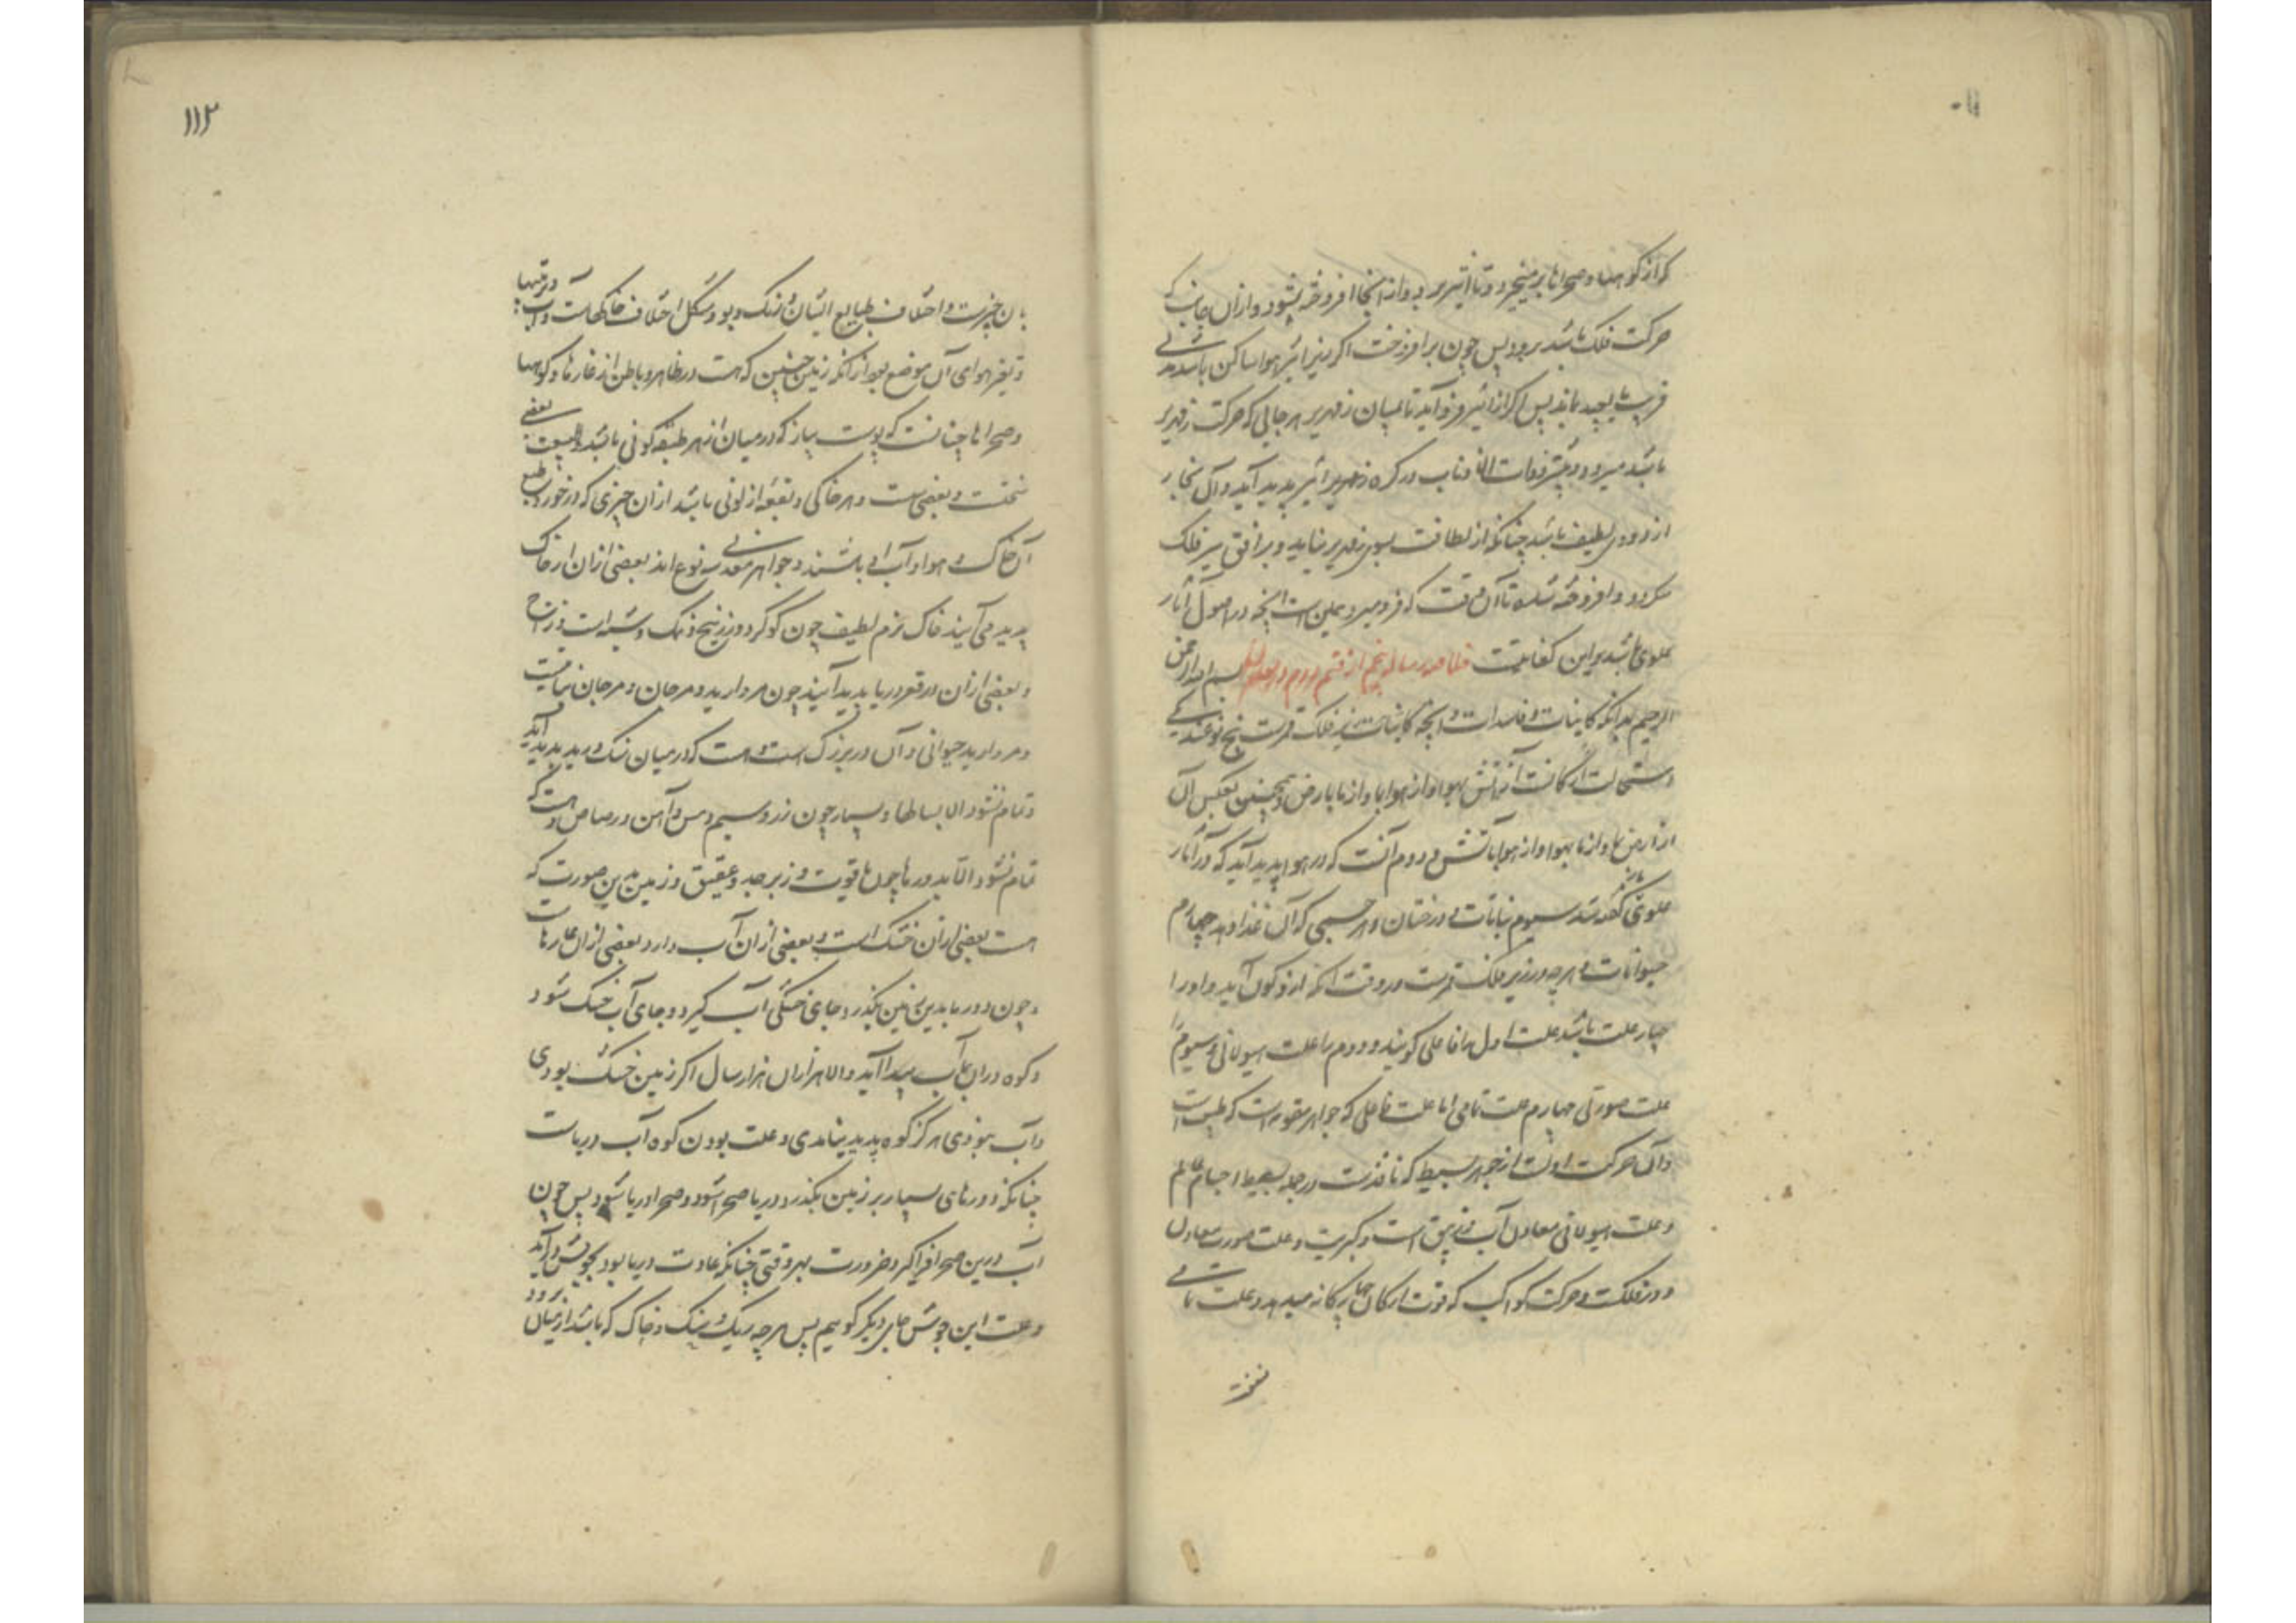 که از کوهها و صحراها برمیخیزد و تا اثیر برود و از انجا افروخته بشود و ازان جانب که
حرکت فلک باشد برود پس چون برافروخت اکر زیر اثیر هوا ساکن باشد
بماند پس اکر از اثیر فرو آید تا میان زمهریر هرجایی که حرکت زمهریر
باشد میرود و بیشتر ذوات الاذناب در کره زمهریر اثیر پدید آید و آن بخار
از دودی لطیف باشد چنانکه از لطافت بسوی زمهریر نیاید و بر افق سیر فلک
میکردد و افروخته شده تا آن وقت که فرو میرد همین است انچه در اصول آثار
علوی باشد برین کفایتست خلاصه رساله پنجم از قسم دوم در بسم الله الرحمن
الرحیم بدانکه کاینات و فاسدات و انچه کاینات زیر فلک قمرست پنج نوعند یکی
استحالت ارکانست از آتش بهوا و از هوا باب و از ما بارض و همچنین بعکس آن
از ارض بما و از ما بهوا و از هوا باتش و دوم آنست که در هوا پدید آید که در آثار
علوی کفته شد سیوم نباتات و درختان و هر جسمی که آن غذا دهد چهارم
حیوانات و هرچه در زیر فلک قمرست در وقت انکه از و کون آید و او را
چهار علت باشد علت اول را فاعلی کویند و دوم را علت هیولانی و سیوم
علت صورتی چهارم علت تمامی اما علت فاعلی که جواهر مقومه است که طبیعت است
و آن حرکت اولست از جوهر بسیط که نافذست در جمله بسیط اجسام عالم
و علت هیولانی معادن آب و زیبق است و کبریت و علت صورت معادن
دور فلکست و حرکت کواکب که قوت ارکان چهارکانه میدهد و علت تمامی
منفعت
۱۱۲
بان چیزست و اختلاف طبایع ایشان و رنک و بو و شکل اختلاف خاکهاست و آب و تربتها
و تغیر هوای آن موضع بعد ازانکه زمین چنین که هست در ظاهر و باطن از غارها و کوهها
و صحراها چنانست که پوست پیاز که در میان از هر طبقه کونی باشد بعضی
سختست و بعضی سست و هر خاکی و بقعه از لونی باشد از ان چیزی که در خورد طبع
آن خاک و هوا و آب باشند و جواهر معدنی سه نوع اند بعضی ازان از خاک
پدید می آیند خاک نرم لطیف چون کوکرد و زرنیخ و نمک و شبه است و زاج
و بعضی ازان در قعر دریا پدید آیند چون مروارید و مرجان و مرجان نباتیست
و مروارید حیوانی و آن دری بزرک است و هست که در میان سنک و رید پدید آید
و تمام نشود الا بسالها و بسیار چون زر و سیم و مس و آهن و رصاص و هست که
تمام نشود الا بدورها چون یاقوت و زبرجد و عقیق و زمین بدین صورت که
هست بعضی ازان خشک است و بعضی ازان آب دارد بعضی ازان عمارتهاست
و چون دورها بدین زمین بکذرد جای خشکی آب کیرد و جای آب خشک شود
و کوه دران آب پیدا آید والا هزاران هزار سال اکر زمین خشک بودی
و آب نبودی هرکز کوه پدید نیامدی و علت بودن کوه آب دریاست
چنانکه دورهای بسیار بر زمین بکذرد دریا صحرا شود و صحرا دریا شود پس چون
آب درین صحرا فراکیرد ضرورت بهر وقتی چنانکه عادت دریا بود بجوش درآید
و علت این جوش جای دیکر کوییم پس هرچه ریک و سنک و خاک که باشد از میان